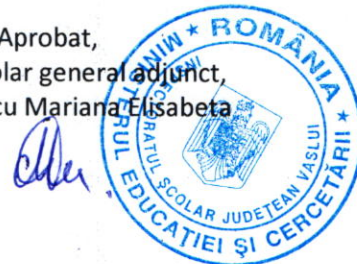 Aprobat,
olar general adjunct,
cu Mariana Elisabeta
* ROMÂNIA *
MINISTERUL EDUCAȚIEI ȘI CERCETĂRII
INSPECTORATUL ȘCOLAR JUDEȚEAN VASLUI